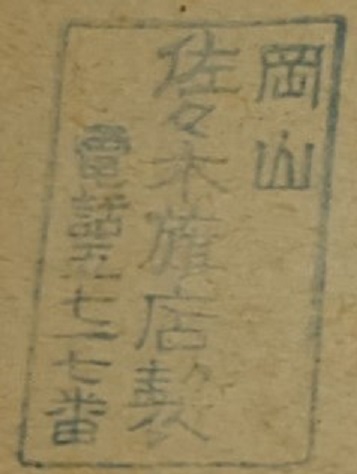 岡山
佐々木旗店製
電話九七一七番